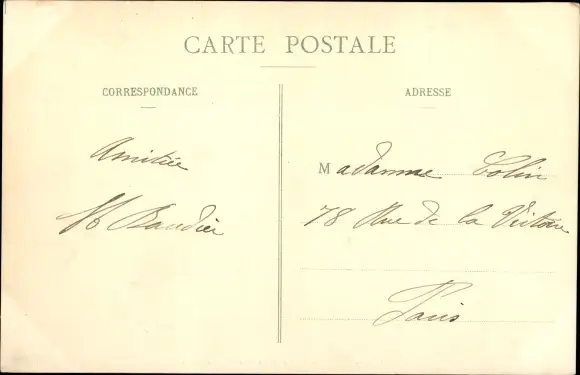 CARTE POSTALE
CORRESPONDANCE
ADRESSE
Amitiée
H Baudier
Madamme Colin
78 Rue de la Victoire
Paris